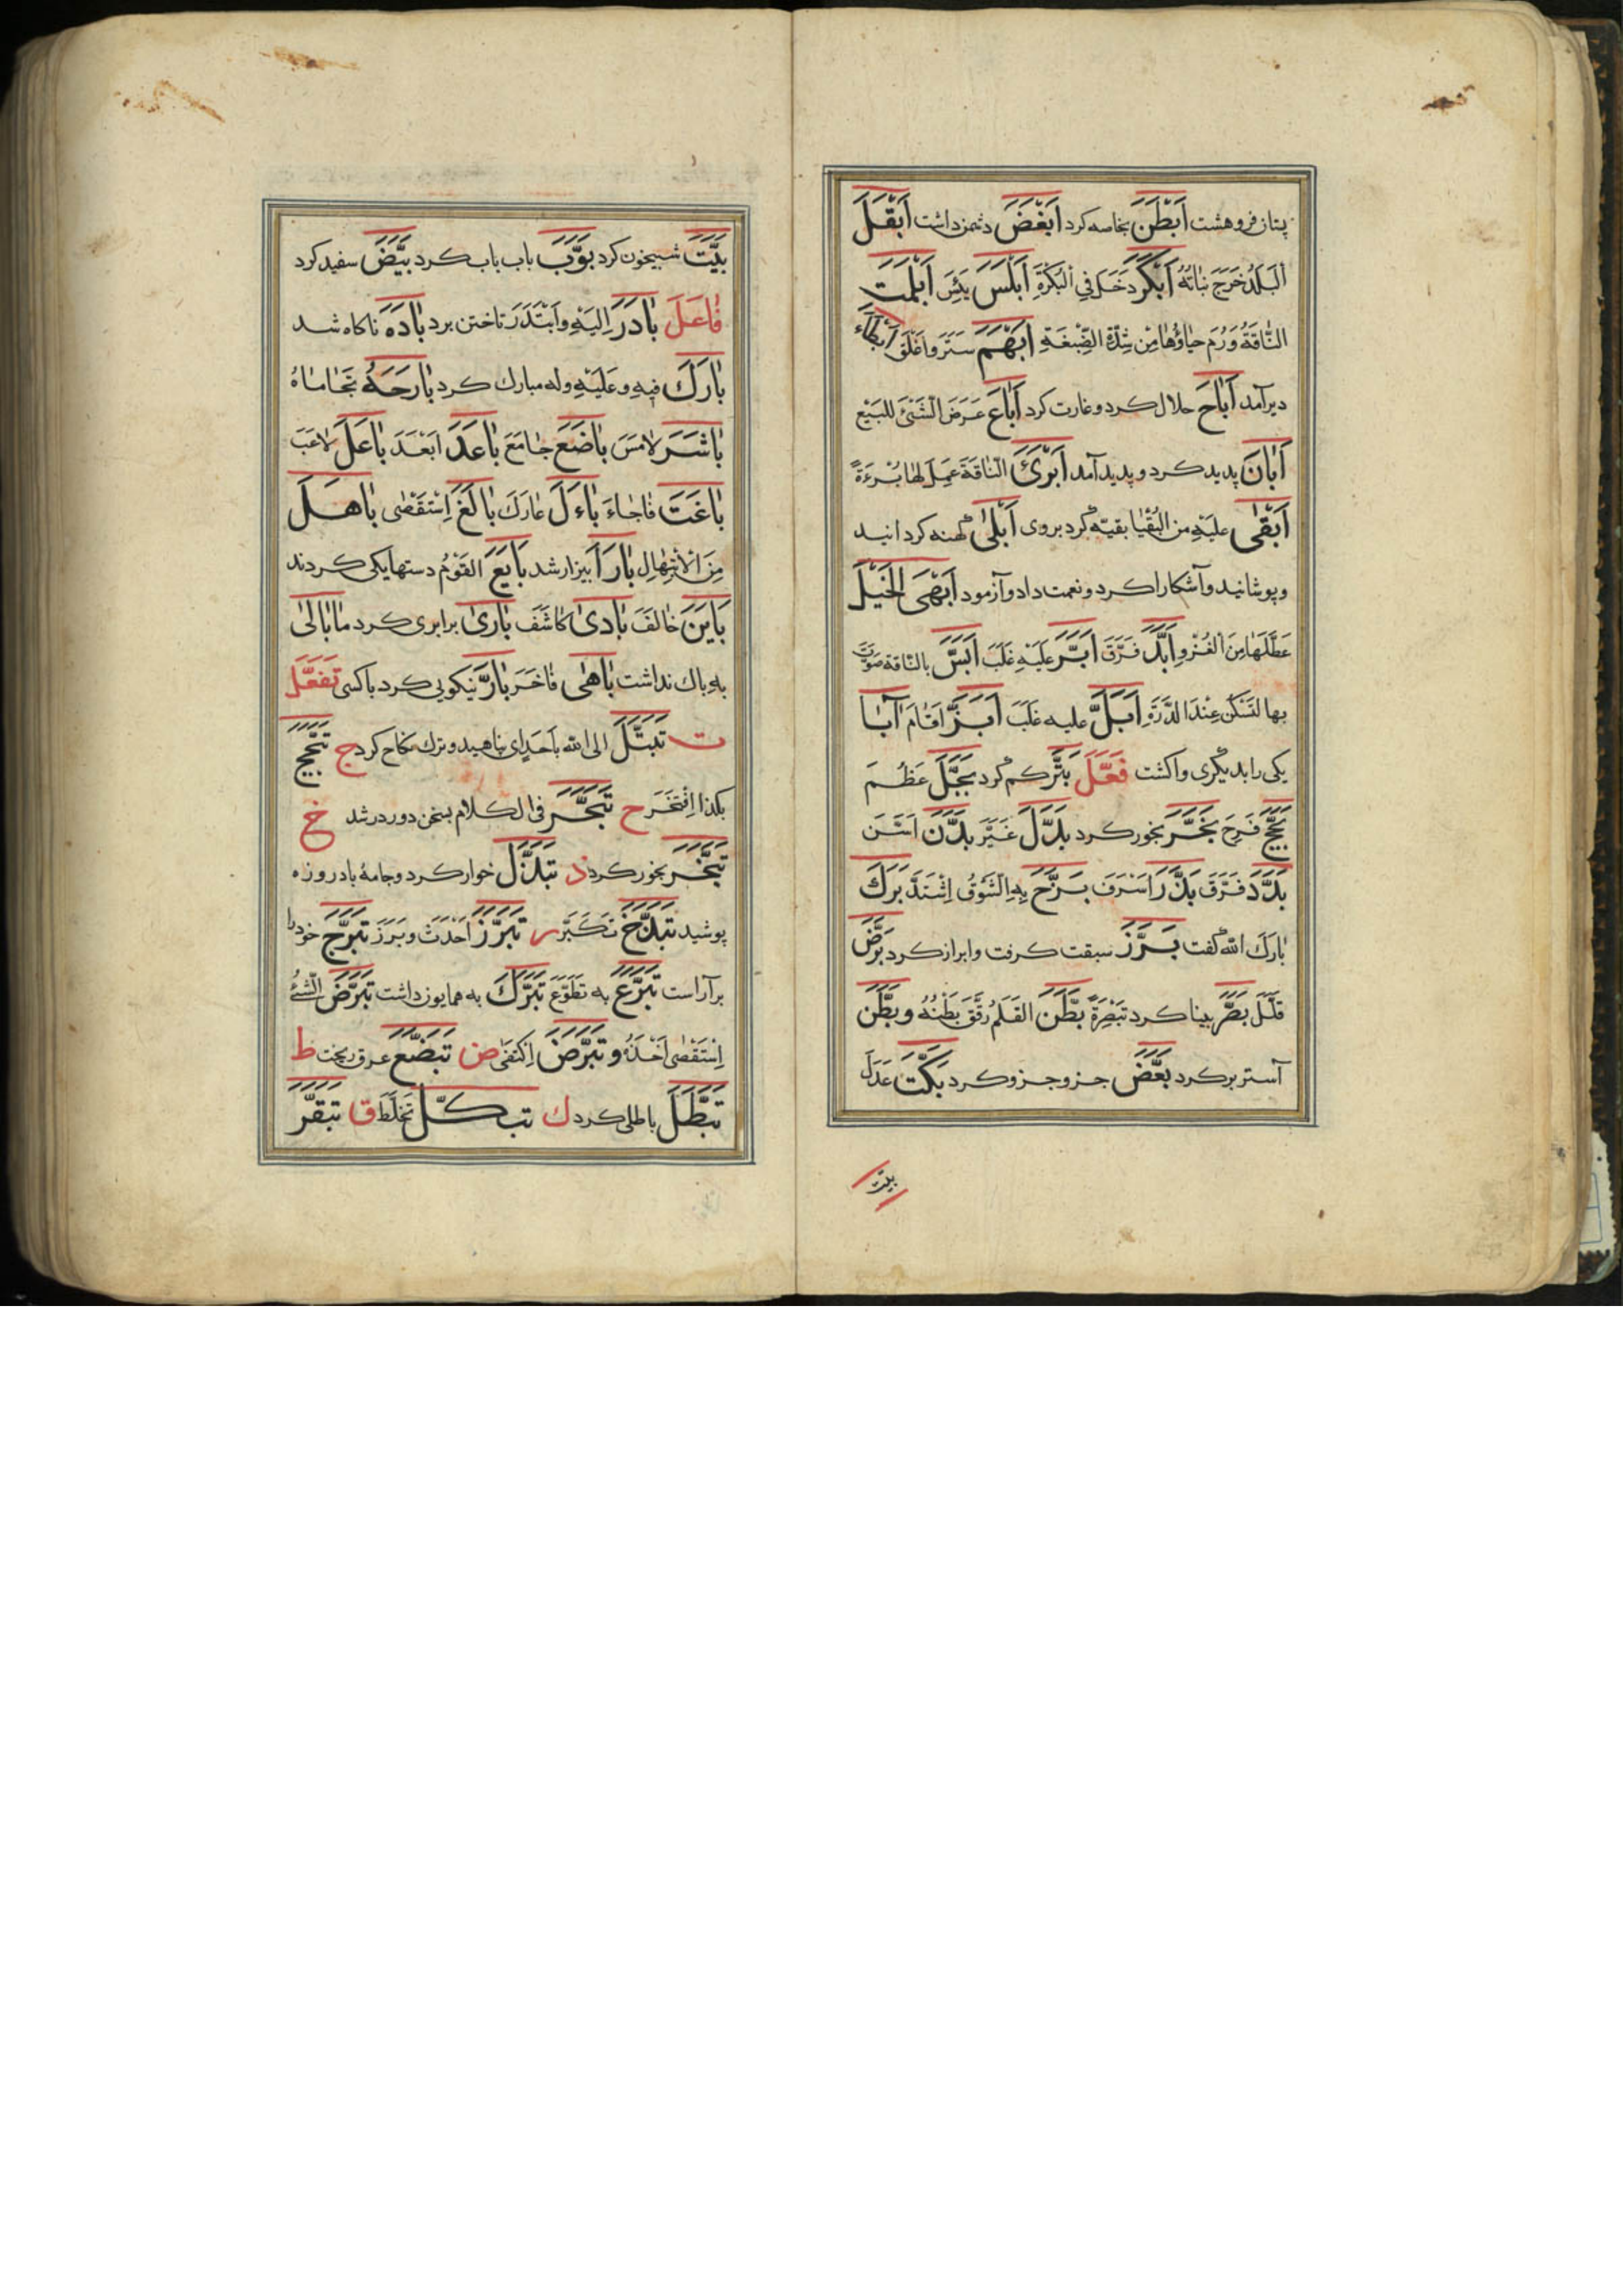 پتان فروهشت اَبْطَنَ بخاصه کرد اَبْغَضَ دشمن داشت اَبْقَلَ
اَلْبَلَدُ خَرَجَ نَبَاتُهُ اَبْکَرَ دَخَلَ فِي الْبُکْرَةِ اَبْلَسَ يَئِسَ اَبْلَمَتِ
النَّاقَةُ وَرَمَ حَيَاؤُهَا مِنْ شِدَّةِ الضَّبْغَةِ اَبْهَمَ سَتَرَ وَاَغْلَقَ اَبْطَاءَ
دیر آمد اَبَاحَ حلال کرد و غارت کرد اَبَاعَ عَرَضَ الشَّئَ لِلْبَيْعِ
اَبَانَ پدید کرد و پدید آمد اَبْرَئَ النَّاقَةَ عَمِلَ لَهَا بُرْءَةً
اَبْقٰى عَلَيْهِ مِنَ الْبُقْيَا بقیّه کرد بروی اَبْلٰى کهنه کردانید
و پوشانید و آشکارا کرد و نعمت داد و آزمود اَبْهَى الْخَيْلَ
عَطَّلَهَا مِنَ الْغَزْوِ اَبَدَّ فَرَّقَ اَبَرَّ عَلَيْهِ غَلَبَ اَبَسَّ بالنّاقة صَوَّتَ
بها لتسکن عِنْدَ الدَّرَّةِ اَبَلَّ علیه غَلَبَ اَبَنَّ اَقَامَ اَبَاَ
یکی را بدیگری واکشت فَعَّلَ بَتَّرَ کم کرد بَجَّلَ عَظُمَ
بَجَّحَ فَرِحَ بَخَّرَ بخور کرد بَدَّلَ غَيَّرَ بَدَّنَ اَسَنَّ
بَدَّدَ فَرَّقَ بَذَّرَ اَسْرَفَ بَرَّحَ بِهِ الشَّوْقُ اِشْتَدَّ بَرَّكَ
بَارَكَ اللّٰه گفت بَرَّزَ سبقت کرفت و ابراز کرد بَرَّضَ
قَلَّلَ بَصَّرَ بینا کرد تَبْصِرَةً بَطَّنَ القَلَمَ رَقَّقَ بَطْنَهُ و بَطَّنَ
آستر بر کرد بَعَّضَ جزو جزو کرد بَکَّتَ عَذَلَ
بیّت
بَيَّتَ شبیخون کرد بَوَّبَ باب باب کرد بَيَّضَ سفید کرد
فَاعَلَ بَادَرَ اِلَيْهِ وَابْتَدَرَ تاختن برد بَادَهَ ناکاه شد
بَارَكَ فيهِ و عَلَيْهِ و له مبارك کرد بَارَحَهُ تَحَامَاهُ
بَاشَرَ لَامَسَ بَاضَعَ جَامَعَ بَاعَدَ اَبْعَدَ بَاعَلَ لَاعَبَ
بَاغَتَ فَاجَاءَ بَاءَلَ عَارَكَ بَالَغَ اِسْتَقْصٰى بَاهَلَ
مِنَ الْاِبْتِهَالِ بَارَاَ بیزار شد بَايَعَ القَوْمُ دستها یکی کردند
بَايَنَ خَالَفَ بَادٰى کَاشَفَ بَارٰى برابری کرد مَا بَالٰى
بِهِ باك نداشت بَاهٰى فَاخَرَ بَارَّ نیکویی کرد باکسی تَفَعَّلَ
ت تَبَتَّلَ الى اللّٰه بِاَحَدٍ ای پناهید و ترك نکاح کرد ج تَبَجَّحَ
بکذا اِفْتَخَرَ ح تَبَحَّرَ فى الکلام بسخن دور در شد خ
تَبَخَّرَ بخور کرد ذ تَبَذَّلَ خوار کرد و جامهٔ بادروزه
پوشید تَبَذَّخَ تَکَبَّرَ ر تَبَرَّزَ اَحْدَثَ و بَرَزَ تَبَرَّجَ خود را
برآراست تَبَرَّعَ به تَطَوَّعَ تَبَرَّكَ به همایون داشت تَبَرَّضَ الشَّئَ
اِسْتَقْصٰى اَخْذَهُ و تَبَرَّضَ اِکْتَفٰى ض تَبَضَّعَ عرق ریخت ط
تَبَطَّلَ باطلی کرد ك تبکَّلَ تَخَلَّطَ ق تَبَقَّرَ